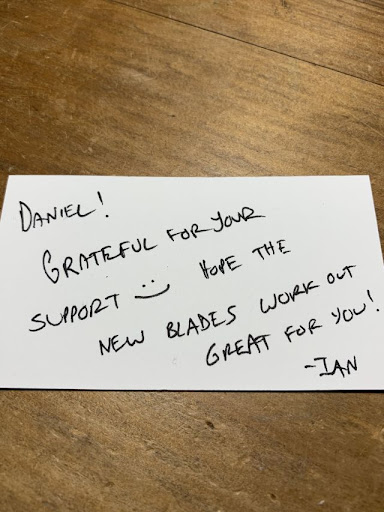 DANIEL!
GRATEFUL FOR YOUR
SUPPORT :) HOPE THE
NEW BLADES WORK OUT
GREAT FOR YOU!
-IAN